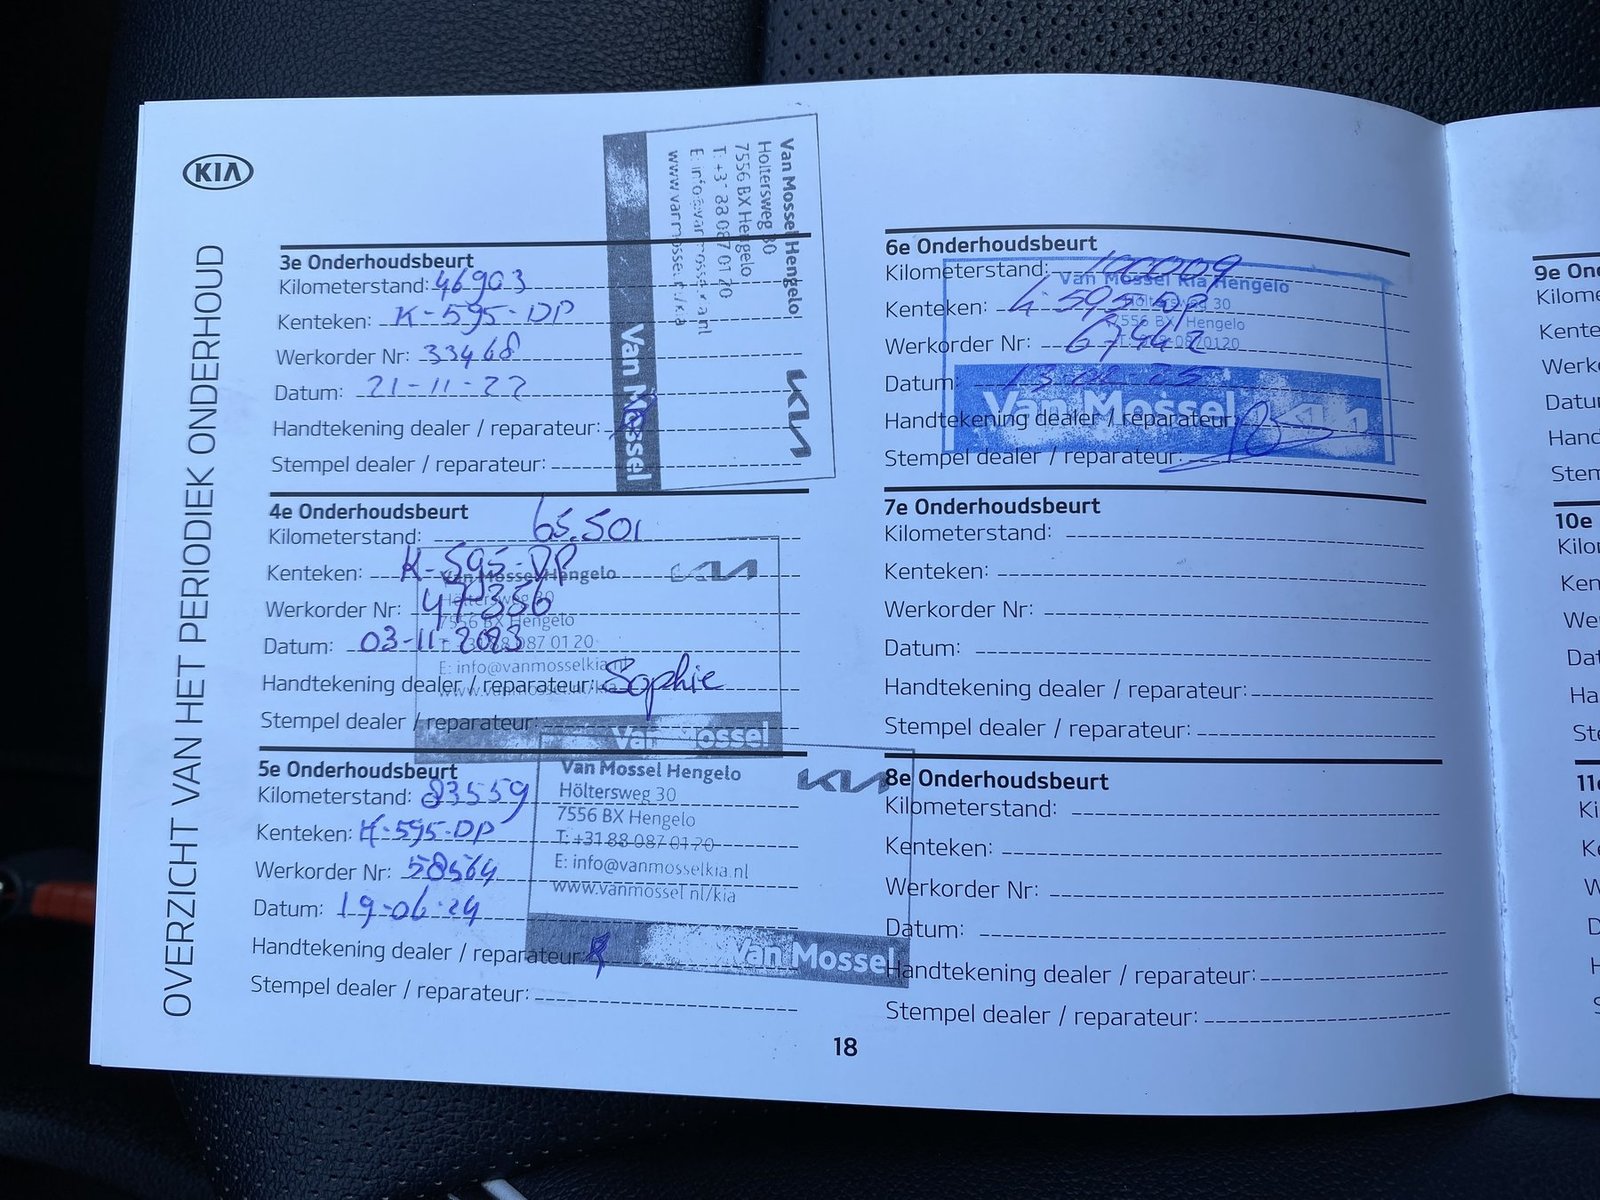 KIA
OVERZICHT VAN HET PERIODIEK ONDERHOUD
3e Onderhoudsbeurt
Kilometerstand: 46903
Kenteken: K-595-DP
Werkorder Nr: 33468
Datum: 21-11-22
Handtekening dealer / reparateur:
Stempel dealer / reparateur:
Van Mossel Hengelo
Höltersweg 30
7556 BX Hengelo
T: +31 88 087 01 20
E: info@vanmosselkia.nl
www.vanmossel.nl/kia
KIA
Van Mossel
4e Onderhoudsbeurt
Kilometerstand: 65.501
Kenteken: K-595-DP
Werkorder Nr: 47356
Datum: 03-11-2023
Handtekening dealer / reparateur: Sophie
Stempel dealer / reparateur:
Van Mossel Hengelo
KIA
Höltersweg 30
7556 BX Hengelo
T: +31 88 087 01 20
E: info@vanmosselkia.nl
www.vanmossel.nl/kia
Van Mossel
5e Onderhoudsbeurt
Kilometerstand: 83559
Kenteken: K-595-DP
Werkorder Nr: 58564
Datum: 19-06-24
Handtekening dealer / reparateur:
Stempel dealer / reparateur:
Van Mossel Hengelo
KIA
Höltersweg 30
7556 BX Hengelo
T: +31 88 087 01 20
E: info@vanmosselkia.nl
www.vanmossel.nl/kia
Van Mossel
6e Onderhoudsbeurt
Kilometerstand: 100009
Kenteken: K-595-DP
Werkorder Nr: 67442
Datum:
Handtekening dealer / reparateur:
Stempel dealer / reparateur:
Van Mossel Kia Hengelo
Höltersweg 30
7556 BX Hengelo
Van Mossel KIA
7e Onderhoudsbeurt
Kilometerstand:
Kenteken:
Werkorder Nr:
Datum:
Handtekening dealer / reparateur:
Stempel dealer / reparateur:
8e Onderhoudsbeurt
Kilometerstand:
Kenteken:
Werkorder Nr:
Datum:
Handtekening dealer / reparateur:
Stempel dealer / reparateur:
18
9e
10e